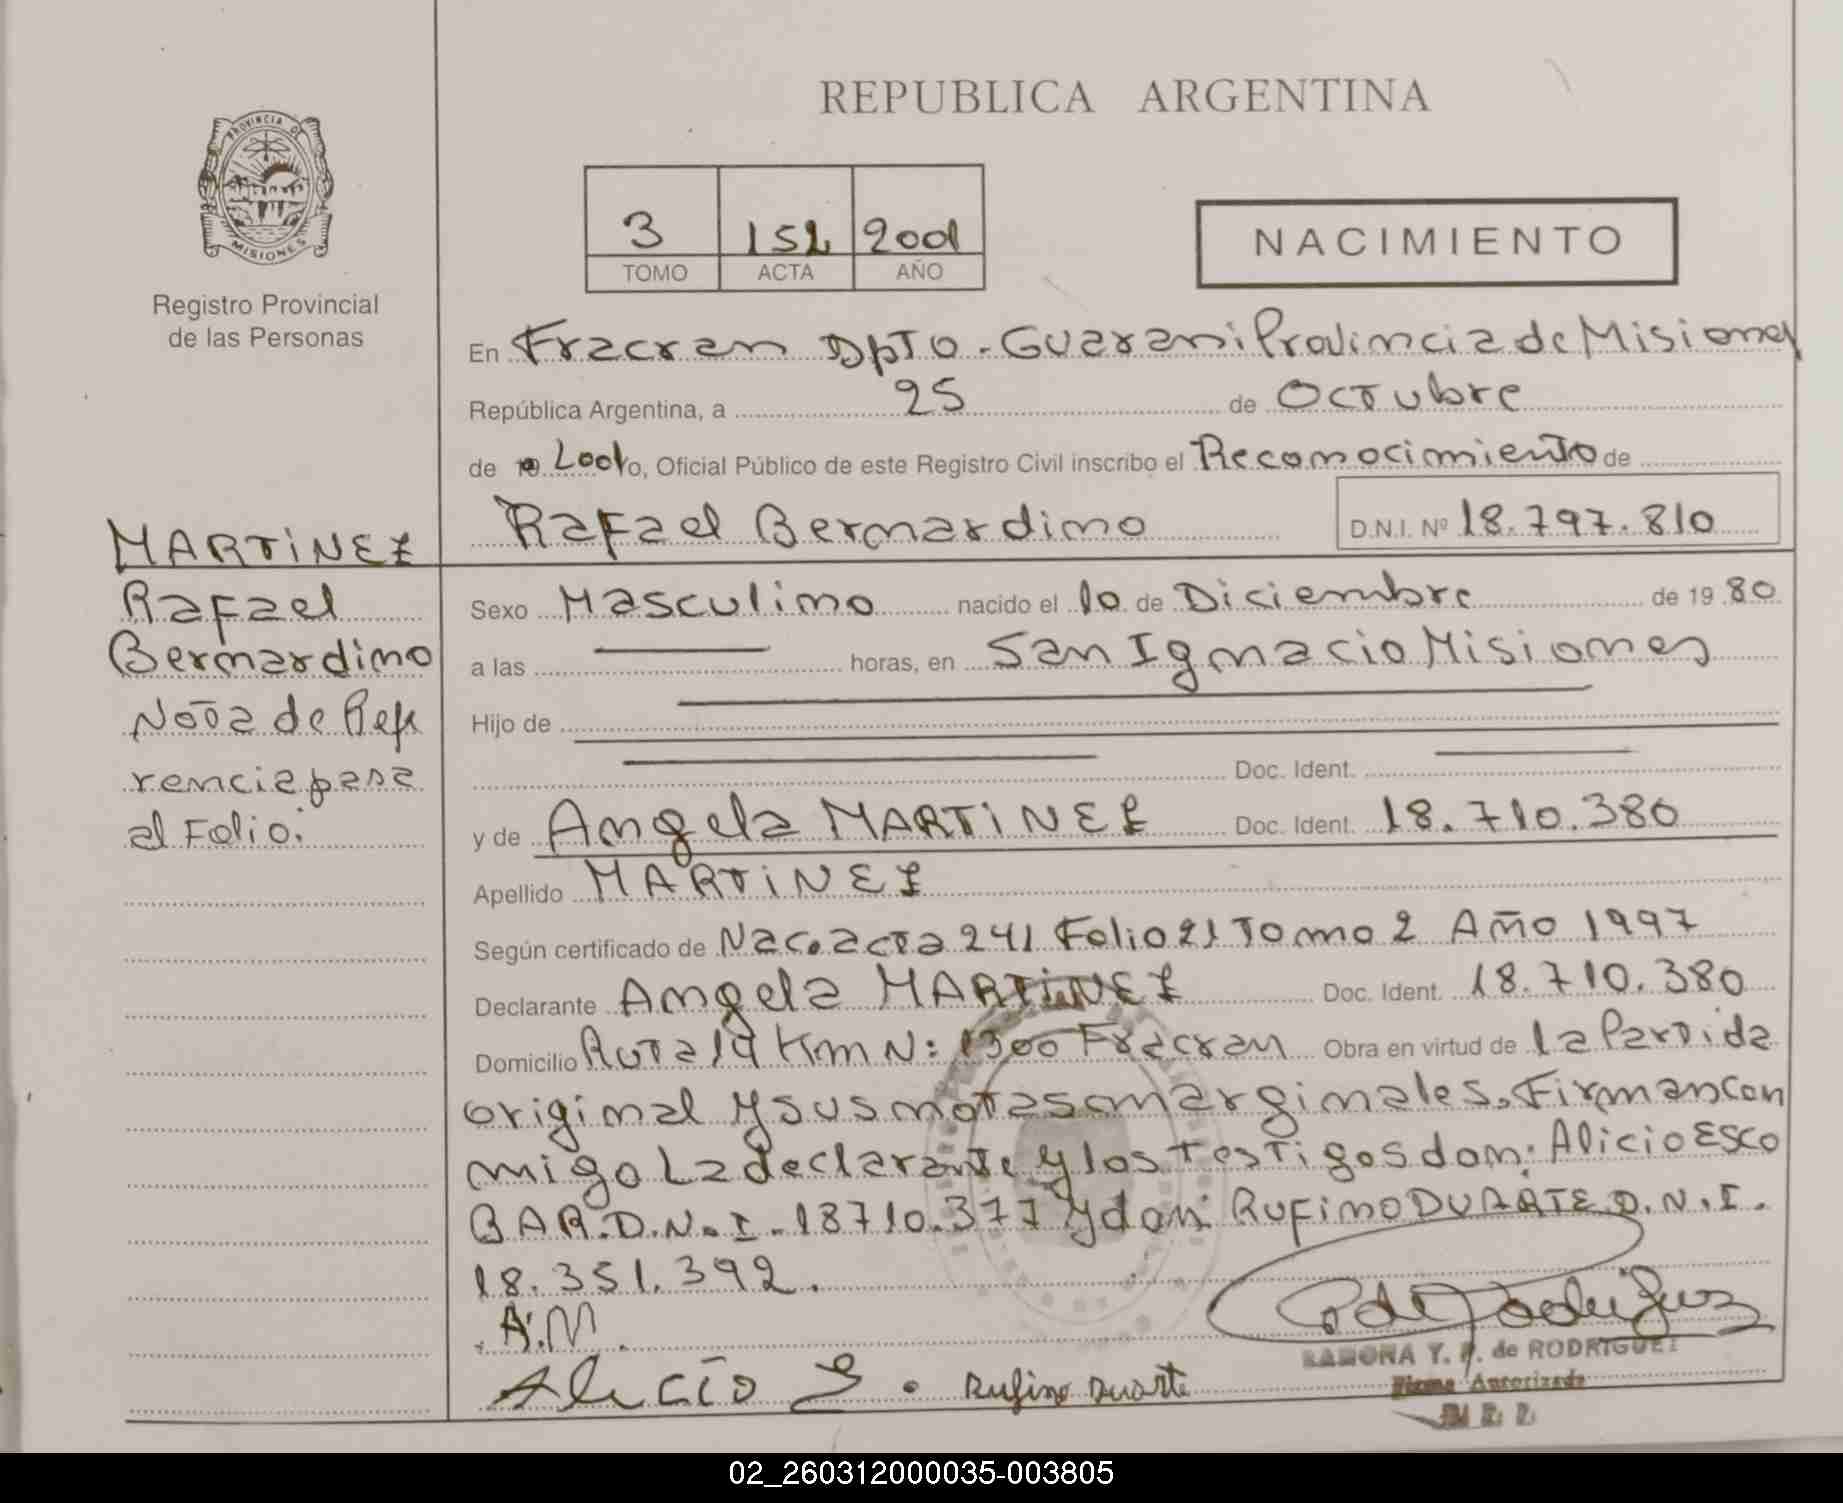 REPUBLICA ARGENTINA
PROVINCIA DE
MISIONES
Registro Provincial
de las Personas
3 152 2001
TOMO ACTA AÑO
NACIMIENTO
En Fracran Dpto - Guarani Provincia de Misiones
República Argentina, a 25 de Octubre
de 2001 o, Oficial Público de este Registro Civil inscribo el Reconocimiento de
Rafael Bernardino D.N.I. Nº 18.797.810
MARTINEZ
Rafael
Bernardino
Nota de Refe
rencia pasa
al Folio.
Sexo Masculino nacido el 10 de Diciembre de 19 80
a las horas, en San Ignacio Misiones
Hijo de
Doc. Ident.
y de Angela MARTINEZ Doc. Ident. 18.710.380
Apellido MARTINEZ
Según certificado de Nac. acta 241 Folio 21 Tomo 2 Año 1997
Declarante Angela MARTINEZ Doc. Ident. 18.710.380
Domicilio Ruta 14 Km N: 1300 Fracran Obra en virtud de la Partida
original y sus notas marginales. Firman con
migo La declarante y los testigos don: Alicio ESCO
BAR. D.N.I. 18710.377 y don: Rufino DUARTE D.N.I.
18.351.392.
A.M.
Alicio E. Rufino Duarte
RAMONA Y. P. de RODRIGUEZ
Firma Autorizada
02_260312000035-003805